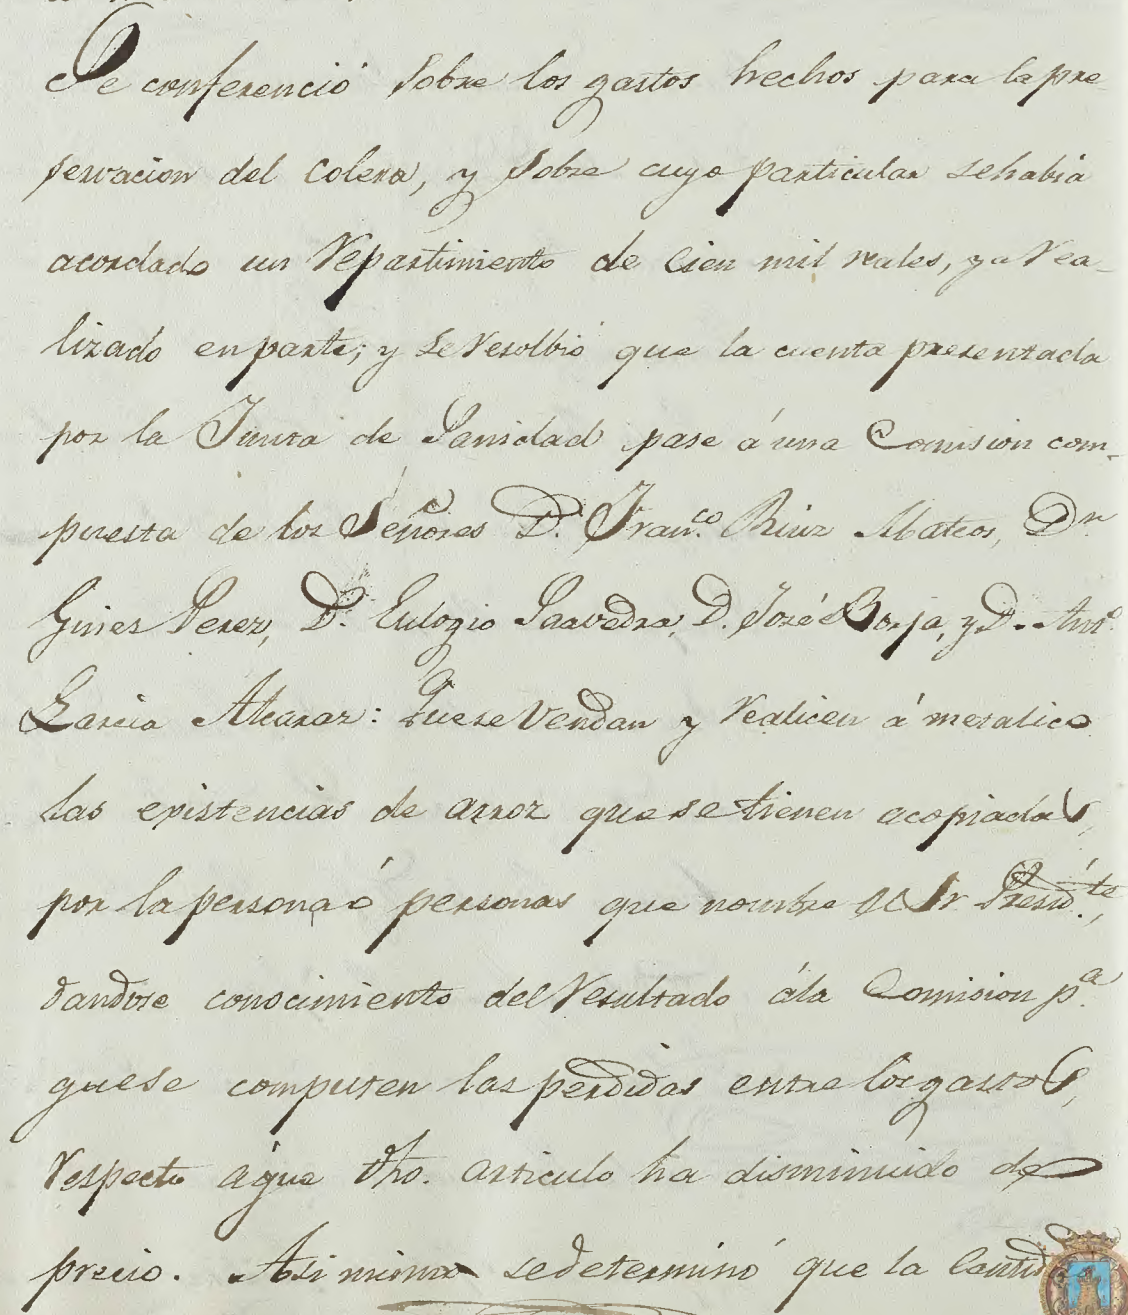 Se conferenció sobre los gastos hechos para la pre-
servacion del Colera, y sobre cuyo particular sehabia
acordado un Repartimiento de Cien mil rales, ya Rea-
lizado en parte; y se Resolbió que la cuenta presentada
por la Junta de Sanidad pase á una Comision com-
puesta de los Señores D. Fran.co Ruiz Mateos, Dn.
Gines Perez, D. Eulogio Saavedra, D. José Borja, y D. Ant.o
Garcia Alcaraz: Que se Vendan y Realicen á metalico
las existencias de arroz que se tienen acopiadas,
por la persona ó personas que nombre el Sr. Presid.te,
dandose conocimiento del Resultado ála Comision p.a
quese computen las perdidas entre los gastos,
Respecto áque dho. articulo ha disminuido de
precio. Asi mismo sedeterminó que la